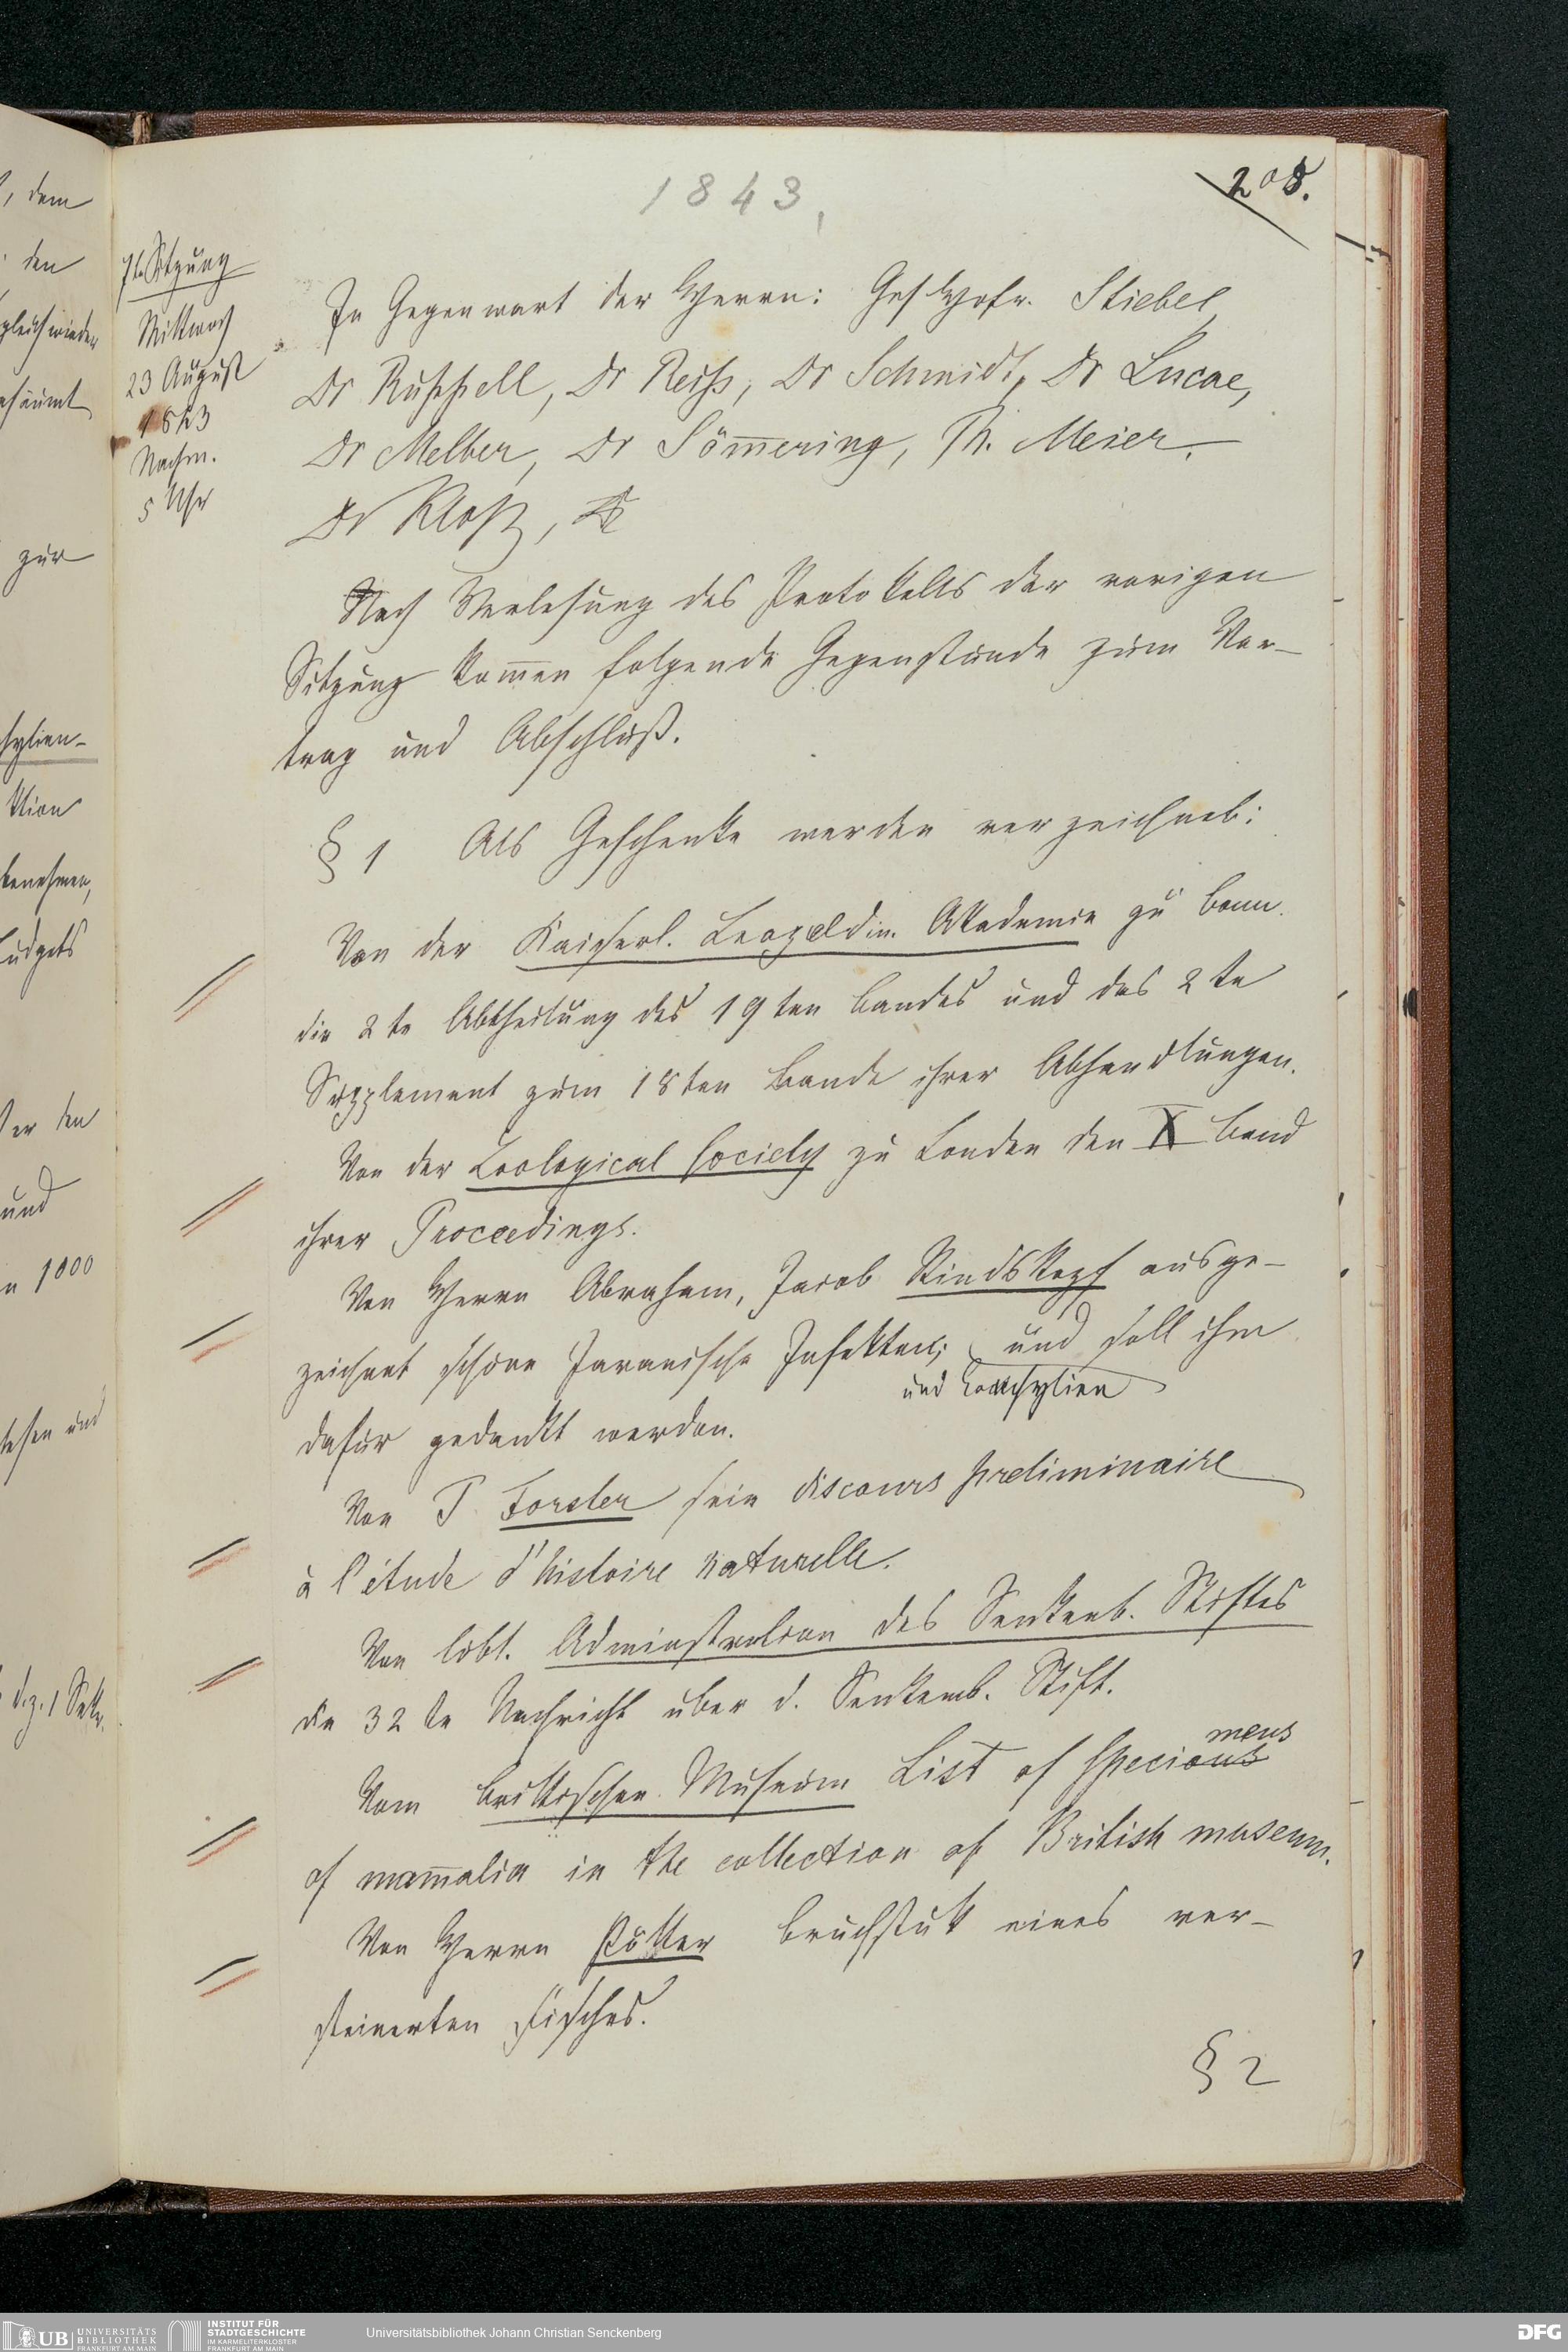 1843,
208.
7te Sitzung
Mittwoch
23 August
1843
Nachm.
5 Uhr
In Gegenwart der Herrn: Geh Hofr. Stiebel,
Dr Ruppell, Dr Reiss, Dr Schmidt, Dr Lucae,
Dr Melber, Dr Sömering, Th. Meier.
Dr Kloß,
Nach Verlesung des Protokolls der vorigen
Sitzung kom̄en folgende Gegenstände zum Vor-
trag und Abschluß.
§ 1 Als Geschenke werden verzeichnet:
Von der Kaiserl. Leopoldin. Akademie zu Bonn.
die 2te Abtheilung des 19ten Bandes und das 2te
Supplement zum 18ten Bande ihrer Abhandlungen.
Von der Zoological Society zu London den X Band
ihrer Proceedings.
Von Herrn Abraham, Jacob Rindskopf ausge-
zeichnet schöne Javanische Insekten; und soll ihm
und Conchylien
dafür gedankt werden.
Von T. Forster sein discours preliminaire
à l'étude d'histoire naturelle.
Von löbl. Adminstration des Senkenb. Stiftes
die 32te Nachricht über d. Senkenb. Stift.
Vom brittischen Museum List of Specious
mens
of mam̄alia in the collection of British museum.
Von Herrn Pötter Bruchstük eines ver-
steinerten Fisches.
§ 2
, dem
den
gleich wieder
zur
sylien-
ktion
benehmen,
Budgets
und
1000
lesen und
UB UNIVERSITÄTS
BIBLIOTHEK
FRANKFURT AM MAIN
INSTITUT FÜR
STADTGESCHICHTE
IM KARMELITERKLOSTER
FRANKFURT AM MAIN
Universitätsbibliothek Johann Christian Senckenberg
DFG